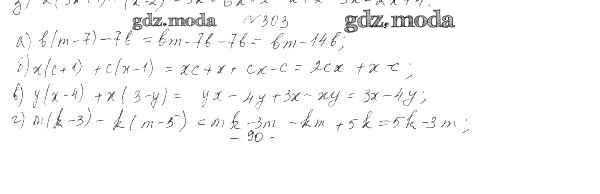 gdz.moda №303 gdz.moda
а) b(m-7)-7b = bm-7b-7b = bm-14b;
б) x(c+1)+c(x-1) = xc+x+cx-c = 2cx+x-c;
в) y(x-4)+x(3-y) = yx-4y+3x-xy = 3x-4y;
г) m(k-3)-k(m-5) = mk-3m-km+5k = 5k-3m;
- 90 -